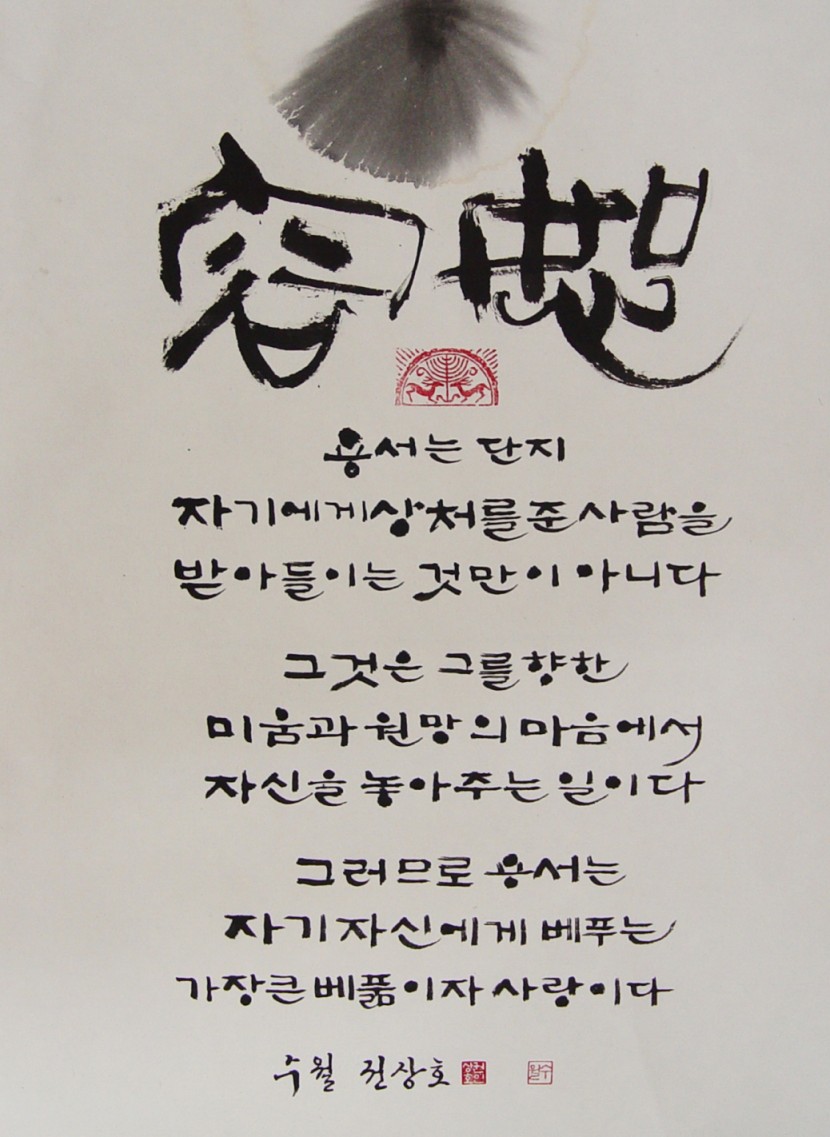 容恕
용서는 단지
자기에게 상처를 준 사람을
받아들이는 것만이 아니다
그것은 그를 향한
미움과 원망의 마음에서
자신을 놓아주는 일이다
그러므로 용서는
자기 자신에게 베푸는
가장 큰 베풂이자 사랑이다
수월 권상호